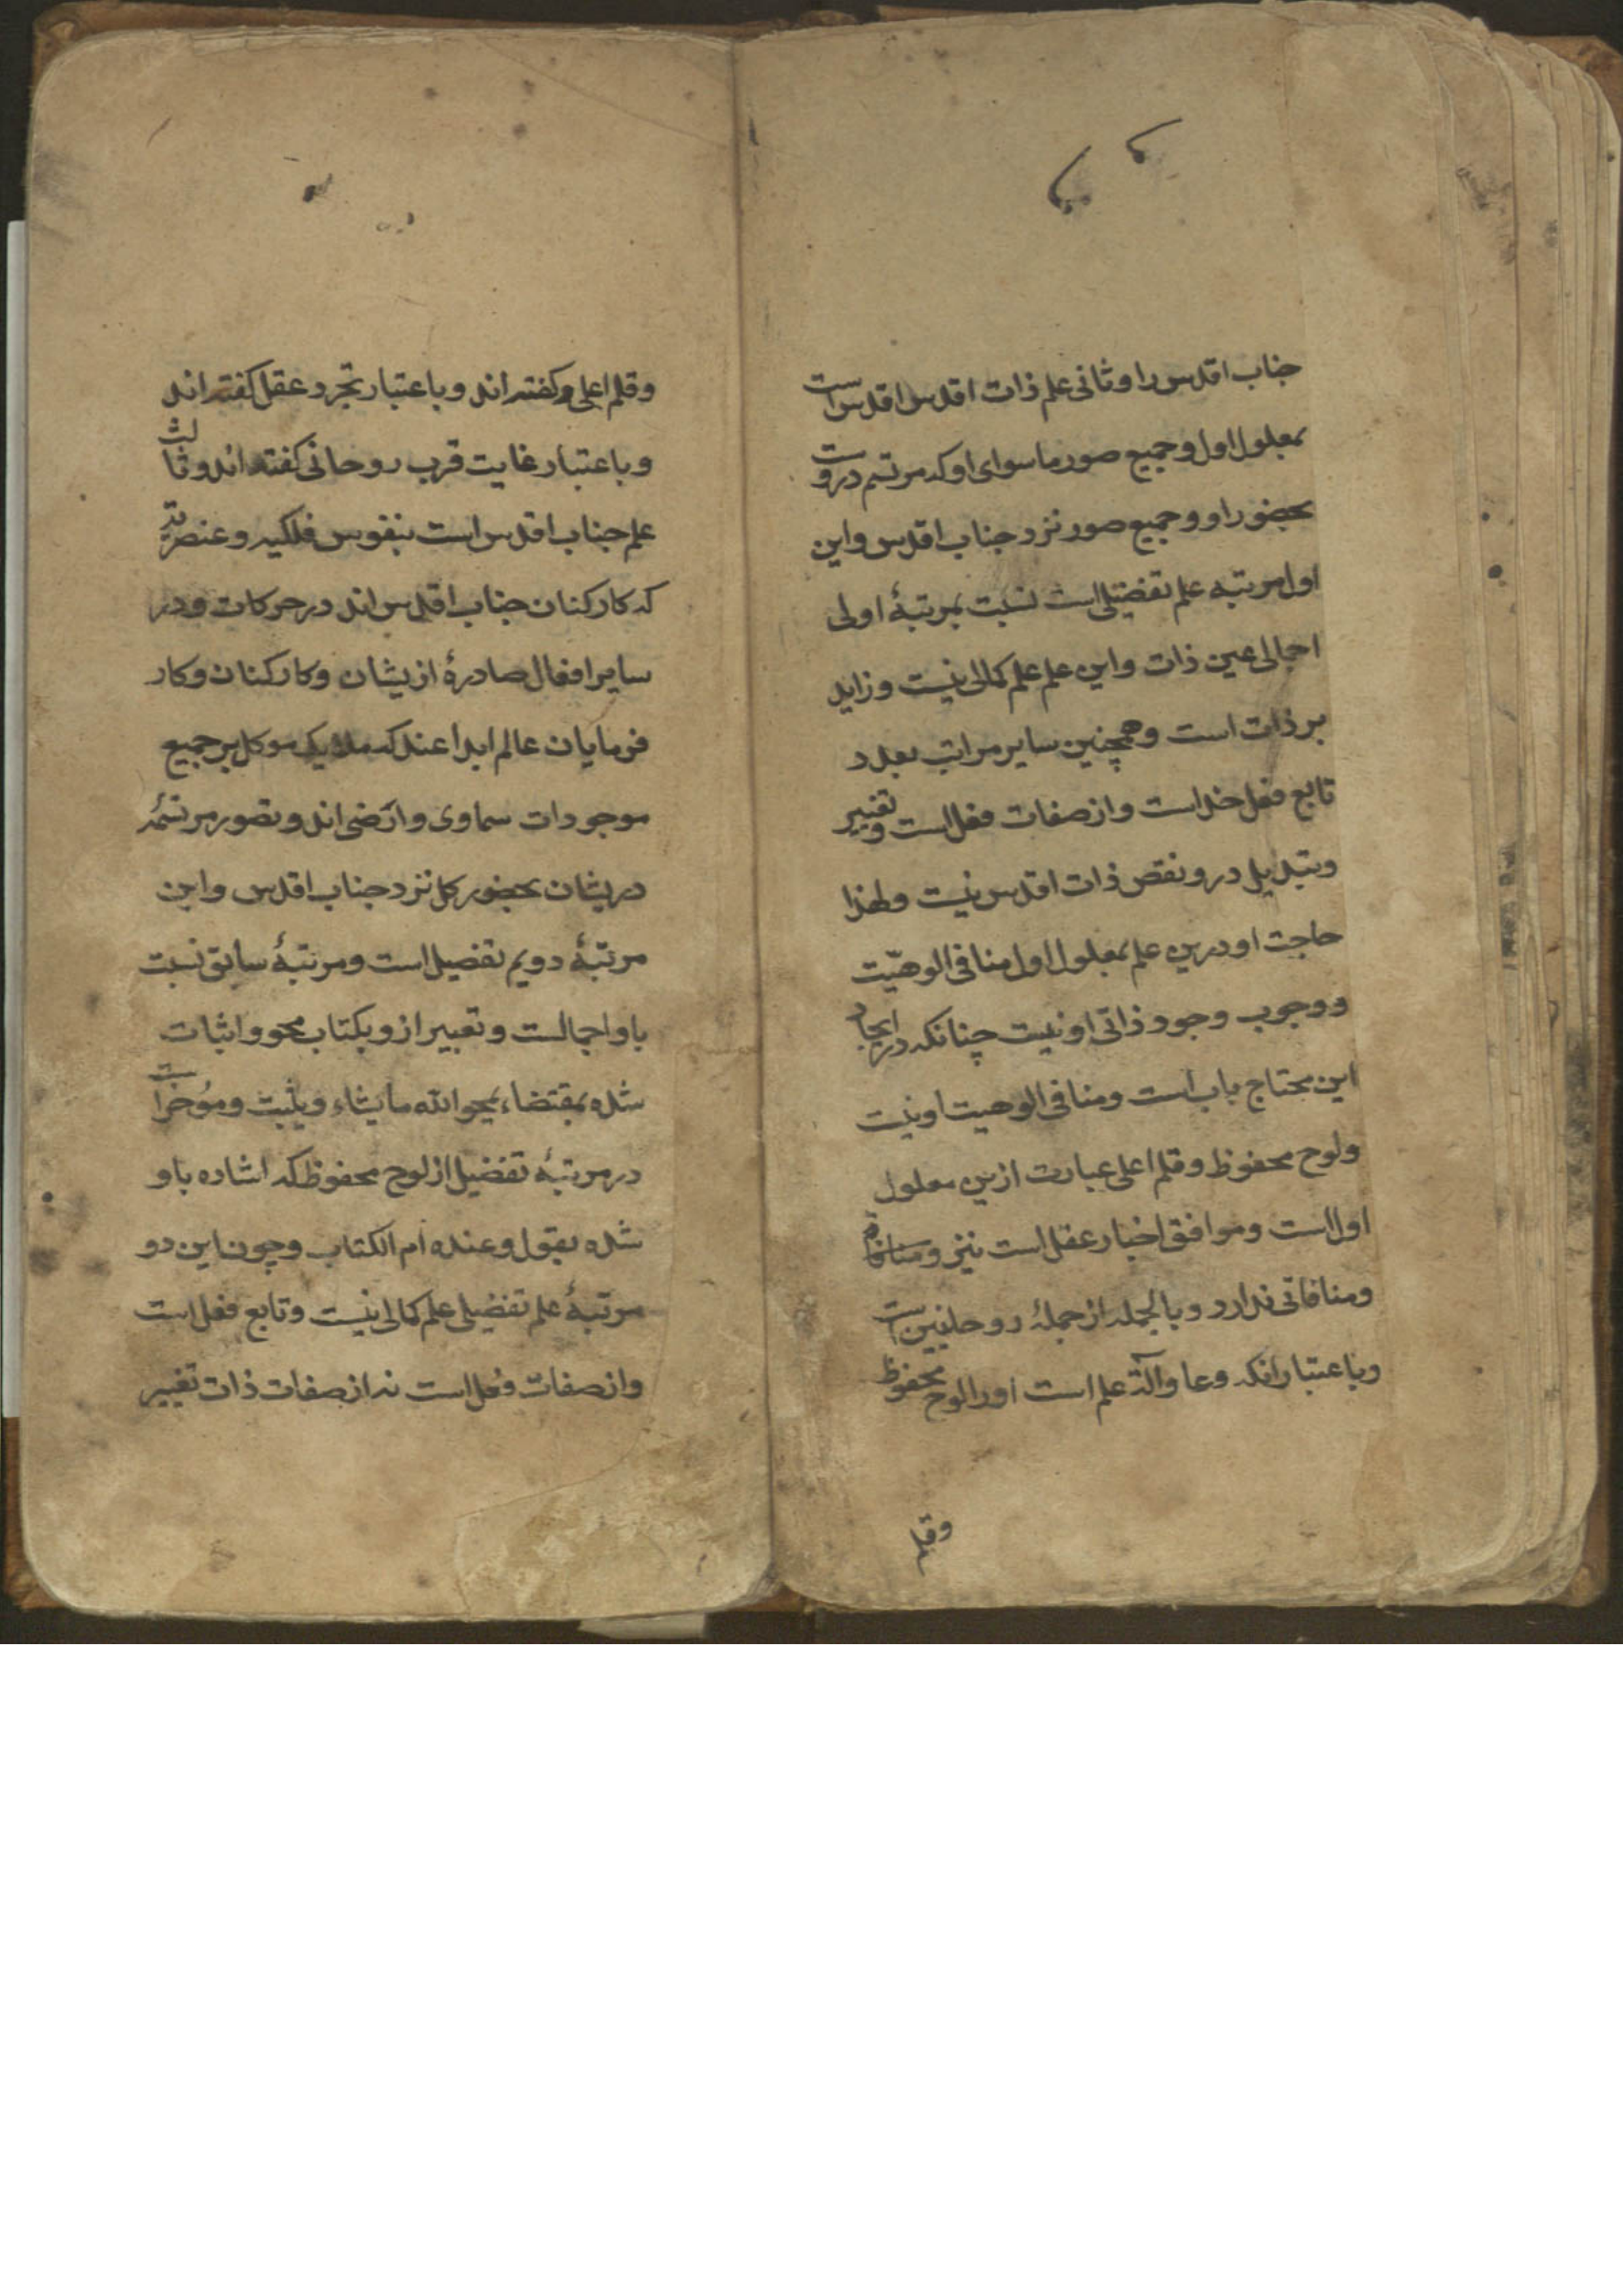 جناب اقدس را و ثانی علم ذات اقدس اقدس است
بمعلول اول و جمیع صور ماسوای او که مرتسم دروست
بحضور او و جمیع صور نزد جناب اقدس و این
اول مرتبه علم تفصیلی است نسبت بمرتبهٔ اولی
اجمالی عین ذات و این علم علم کمالی نیست و زاید
بر ذات است و همچنین سایر مراتب بعد د
تابع فعل خداست و از صفات فعل است و تغییر
و تبدیل درو نقص ذات اقدس نیست و لهذا
حاجت او درین علم بمعلول اول منافی الوهیّت
و وجوب وجود ذاتی او نیست چنانکه در ایجاد
این محتاج باب است و منافی الوهیت او نیست
و لوح محفوظ و قلم اعلی عبارت ازین معلول
اول است و موافق اخبار عقل است نیز و
و منافاتی ندارد و بالجمله از جملهٔ روحانیین است
و باعتبار انکه وعا و آلة علم است او را لوح محفوظ
و قلم اعلی و کفته اند و باعتبار تجرد عقل کفته اند
و باعتبار غایت قرب روحانی کفته اند و ثالث
علم جناب اقدس است بنفوس فلکیه و عنصریه
که کارکنان جناب اقدس اند در حرکات و در
سایر افعال صادرهٔ ازیشان و کارکنان و کار
فرمایان عالم ابداعند که ملایک موکل بر جمیع
موجودات سماوی و ارضی اند و بصور مرتسمه
دریشان بحضور کل نزد جناب اقدس و این
مرتبهٔ دویم تفصیل است و مرتبهٔ سابق نسبت
باو اجمالست و تعبیر ازو بکتاب محو و اثبات
شده بمقتضاء یمحو الله ما یشاء و یثبت و مؤخر است
در مرتبهٔ تفصیل از لوح محفوظ که اشاره باو
شده بقول و عنده ام الکتاب و چون این دو
مرتبهٔ علم تفصیلی علم کمالی نیست و تابع فعل است
و از صفات فعل است نه از صفات ذات تغییر